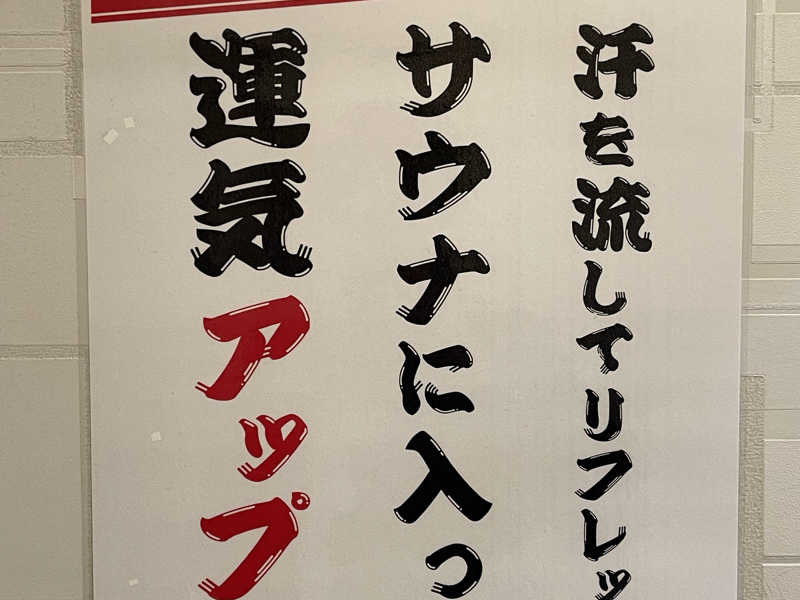 汗を流してリフレッ
サウナに入っ
運気アップ